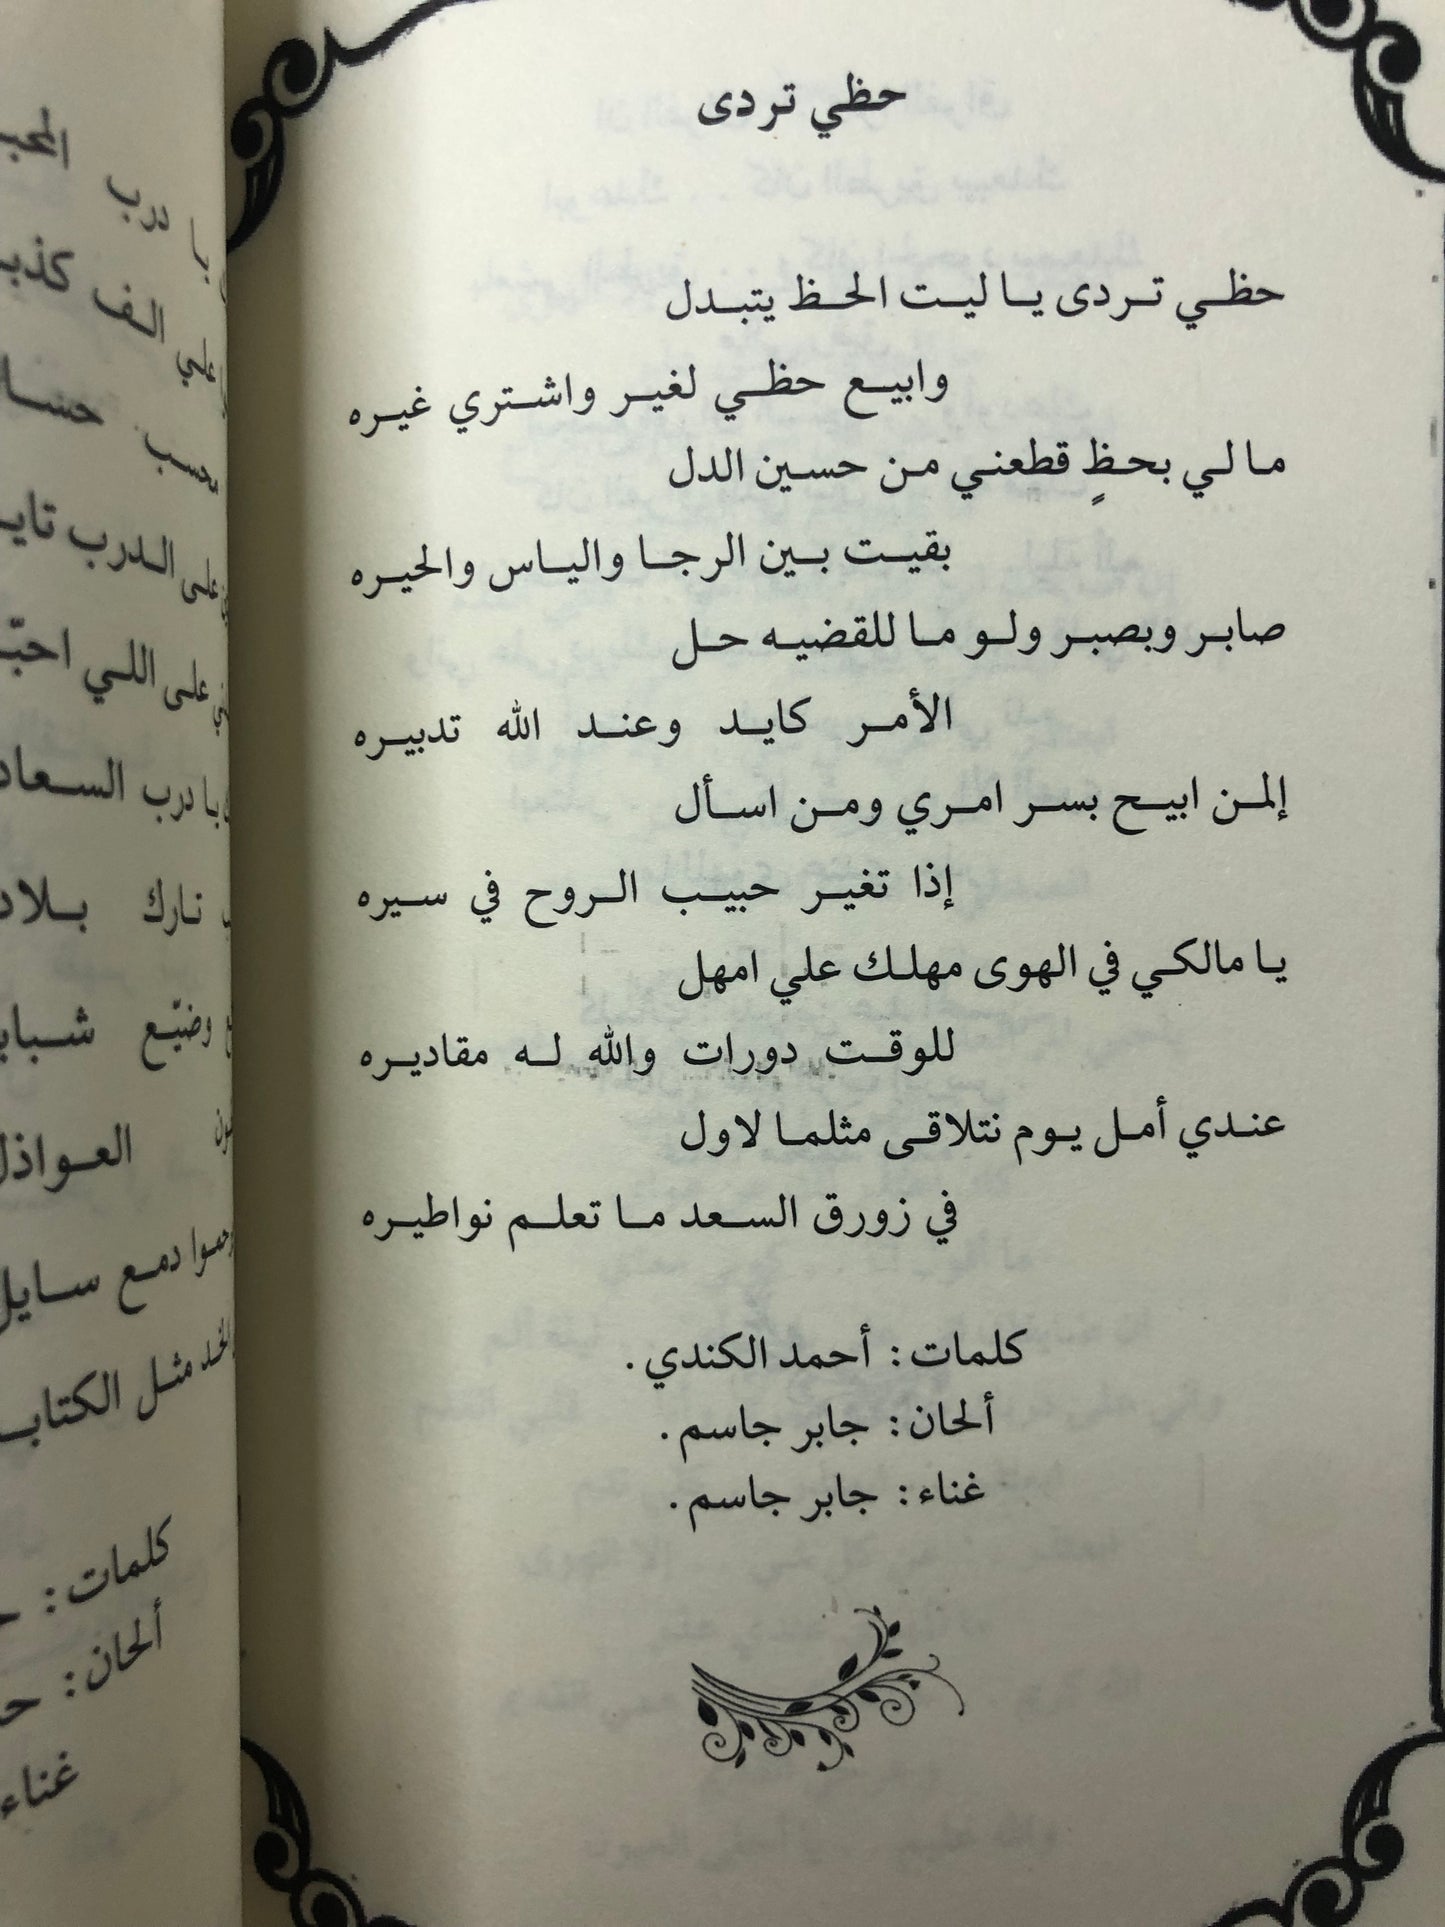 حظي تردى
حظي تردى يا ليت الحظ يتبدل
وابيع حظي لغير واشتري غيره
ما لي بحظٍ قطعني من حسين الدل
بقيت بين الرجا والياس والحيره
صابر وبصبر ولو ما للقضيه حل
الأمر كايد وعند الله تدبيره
إلمن ابيح بسر امري ومن اسأل
إذا تغير حبيب الروح في سيره
يا مالكي في الهوى مهلك علي امهل
للوقت دورات والله له مقاديره
عندي أمل يوم نتلاقى مثلما لاول
في زورق السعد ما تعلم نواطيره
كلمات: أحمد الكندي.
ألحان: جابر جاسم.
غناء: جابر جاسم.
درب
علي الف
محسب
على الدرب
على اللي
يا درب
نارك
وضيّع
العواذل
دمع سايل
مثل الكتاب
كلمات:
ألحان:
غناء